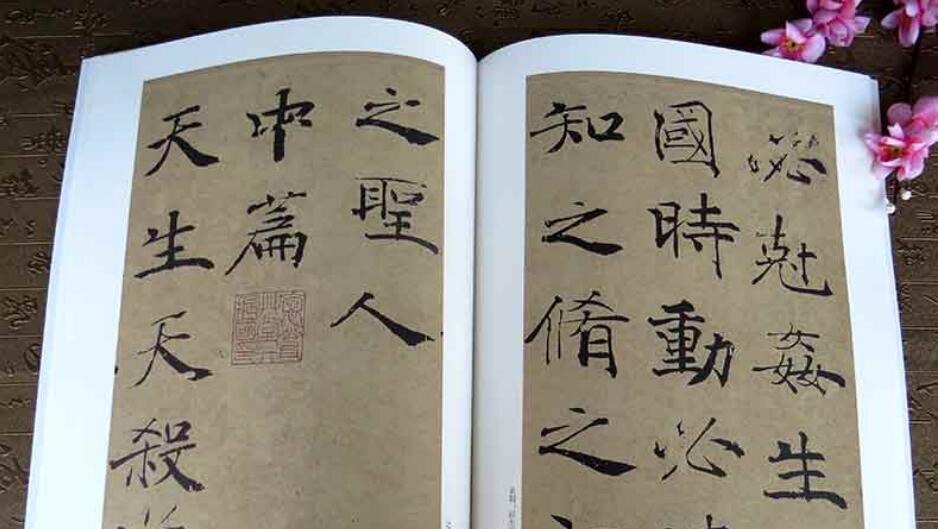 必尅姦生
國時動必
知之脩之
之聖人
中篇
天生天殺